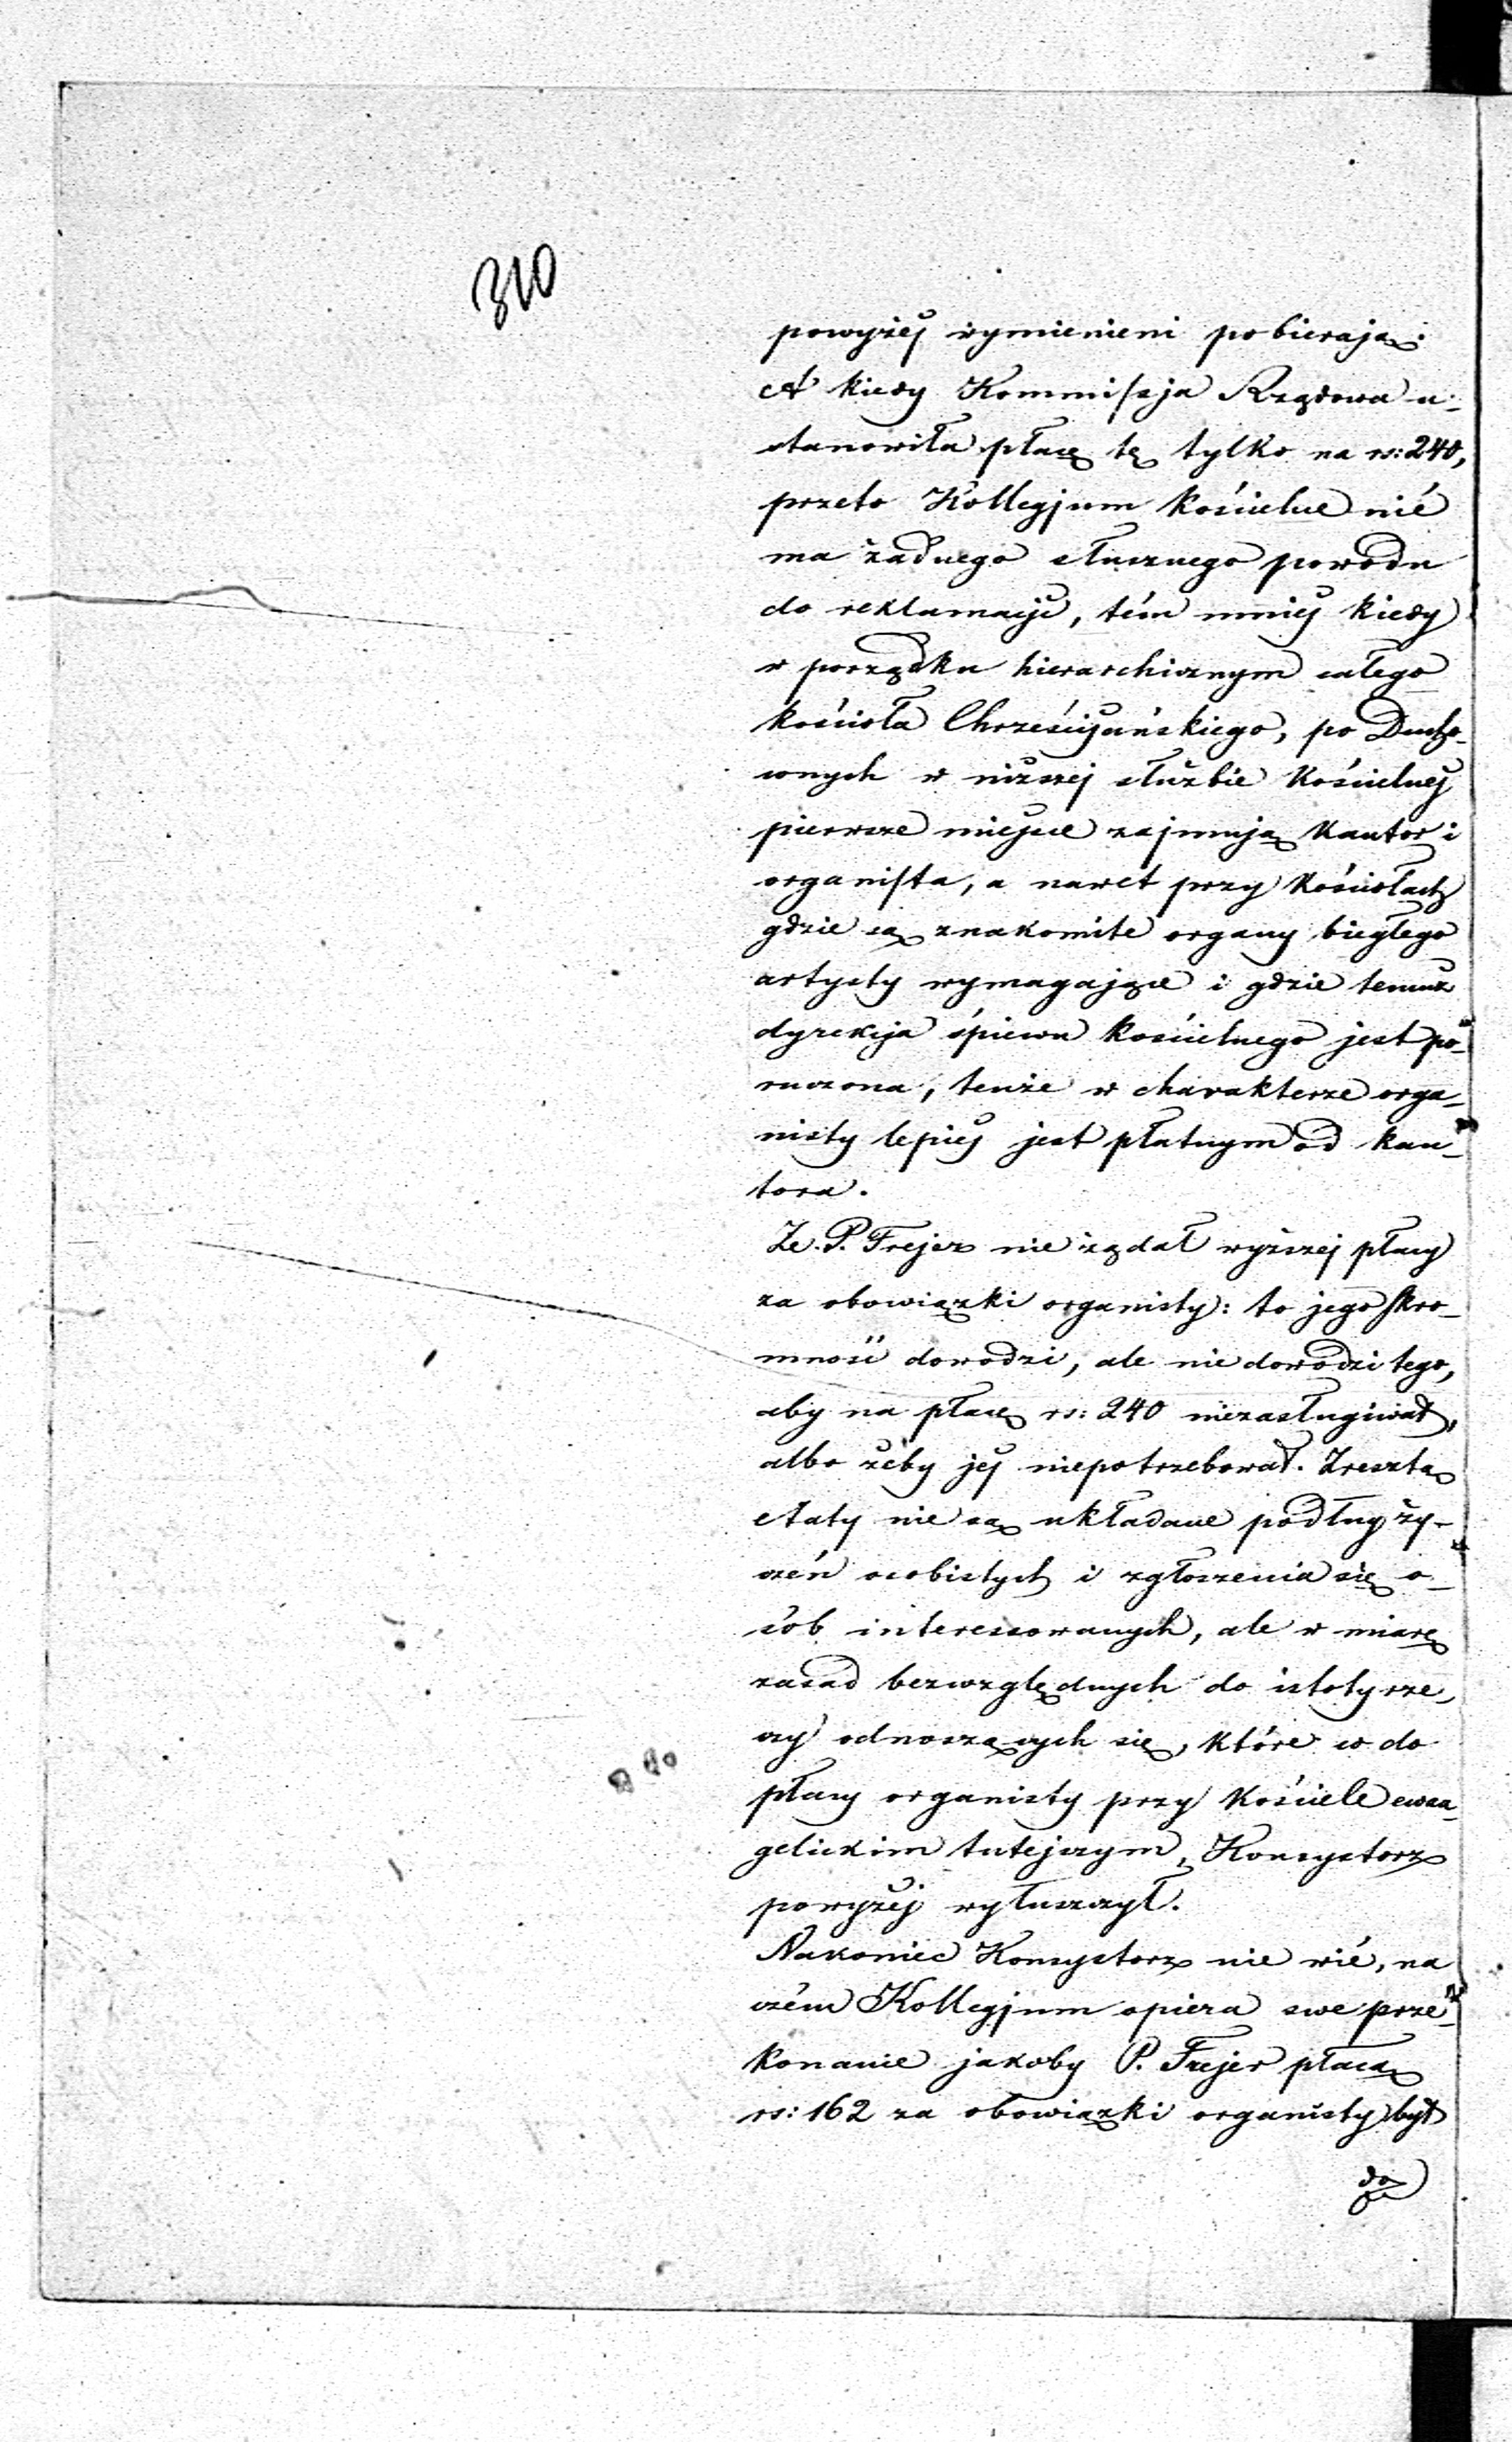 310
powyżej wymienieni pobierają.
A kiedy Kommissja Rządowa u-
stanowiła płacę tę tylko na rs: 240,
przeto Kollegjum Kościelne nié
ma żadnego słusznego powodu
do reklamacyi, tém mniej kiedy
w porządku hierarchicznym całego
kościoła Chrześcijańskiego, po Ducho-
wnych w niższej służbie Kościelnej
pierwsze miejsce zajmują Kantor i
organista, a nawet przy Kościołach
gdzie są znakomite organy biegłego
artysty wymagające i gdzie temuż
dyrekcja śpiewu kościelnego jest po-
ruczona, tenże w charakterze orga-
nisty lepiej jest płatnym od kan-
tora.
Że P. Frejer nie żądał wyższej płacy
za obowiązki organisty: to jego skro-
mność dowodzi, ale nie dowodzi tego,
aby na płacę rs: 240 niezasługiwał,
albo żeby jej niepotrzebował. Zresztą
etaty nie są układane podług ży-
czeń osobistych i zgłoszenia się o-
sób interessowanych, ale w miarę
zasad bezwzględnych do istoty rze-
czy odnoszących się, które co do
płacy organisty przy Kościele ewan-
gelickim tutejszym, Konsystorz
powyżej wyłuszczył.
Nakoniec Konsystorz nie wié, na
czém Kollegjum opiera swe prze-
konanie jakoby P. Frejer płacą
rs: 162 za obowiązki organisty był
do